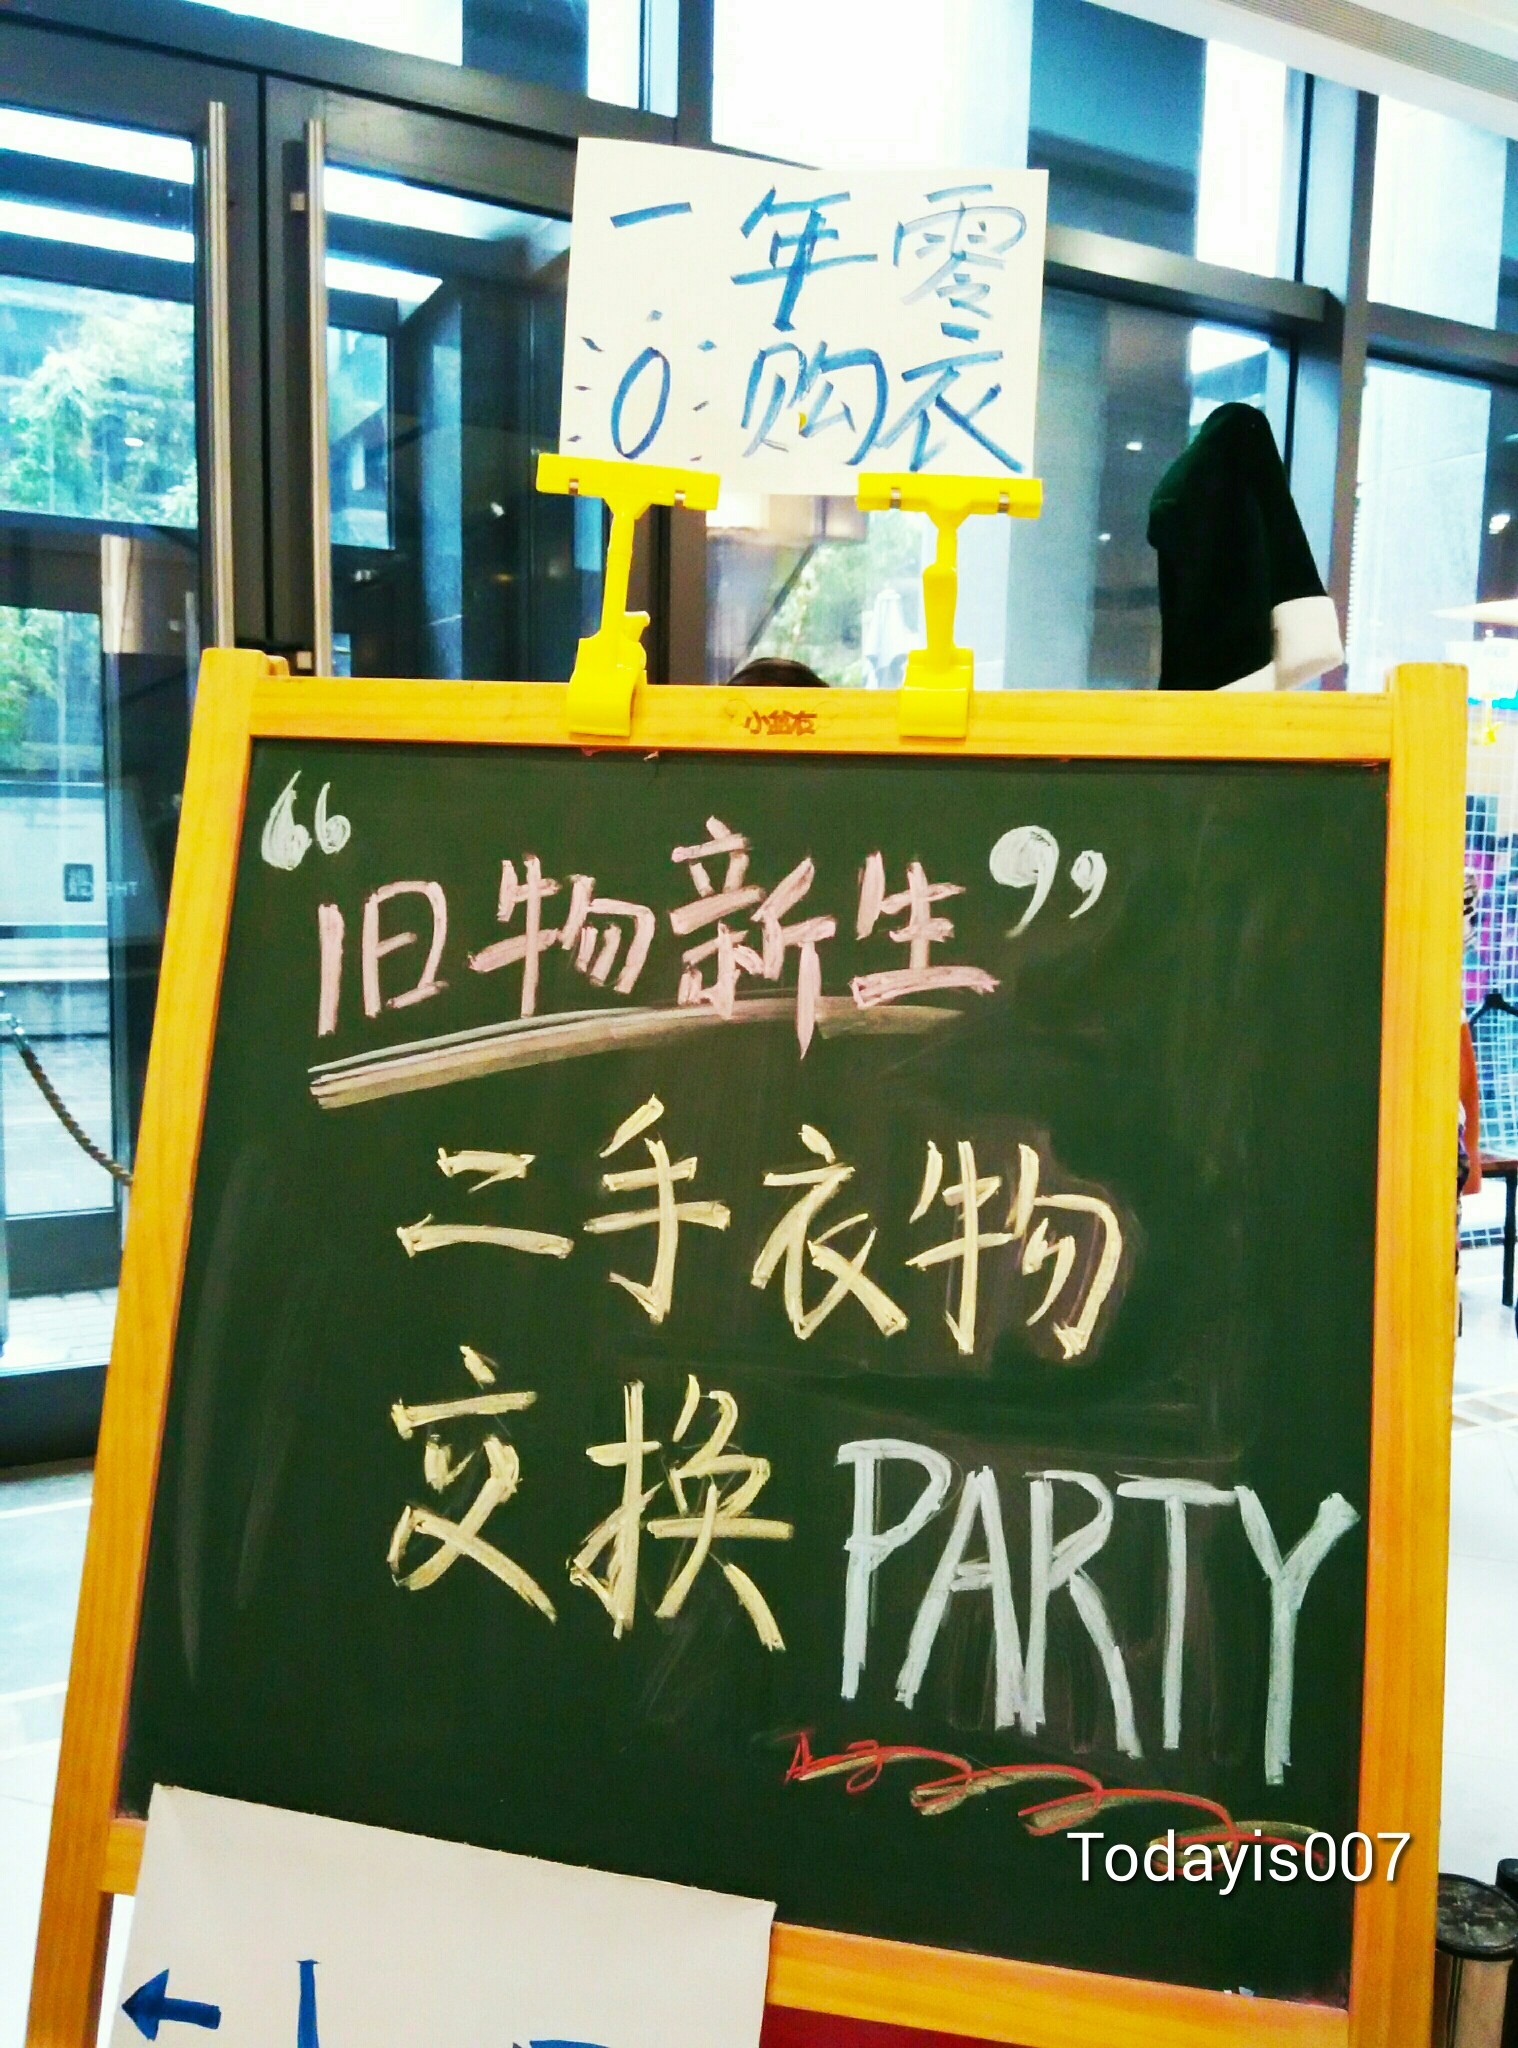 一年零
0购衣
“旧物新生”
二手衣物
交换PARTY
Todayis007